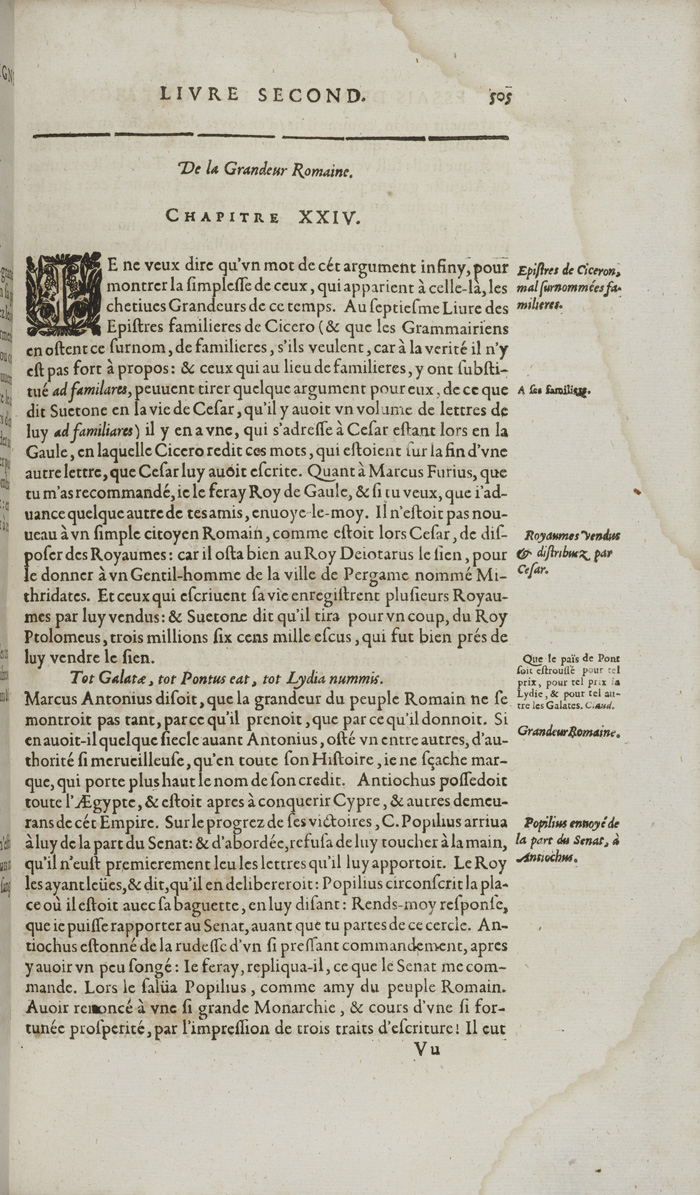 LIVRE SECOND. 505
De la Grandeur Romaine.
CHAPITRE XXIV.
IE ne veux dire qu'vn mot de cét argument infiny, pour
montrer la simplesse de ceux, qui apparient à celle-là, les
chetiues Grandeurs de ce temps. Au septiesme Liure des
Epistres familieres de Cicero (& que les Grammairiens
en ostent ce surnom, de familieres, s'ils veulent, car à la verité il n'y
est pas fort à propos: & ceux qui au lieu de familieres, y ont substi-
tué ad familares, peuuent tirer quelque argument pour eux, de ce que
dit Suetone en la vie de Cesar, qu'il y auoit vn volume de lettres de
luy ad familiares) il y en a vne, qui s'adresse à Cesar estant lors en la
Gaule, en laquelle Cicero redit ces mots, qui estoient sur la fin d'vne
autre lettre, que Cesar luy auoit escrite. Quant à Marcus Furius, que
tu m'as recommandé, ie le feray Roy de Gaule, & si tu veux, que i'ad-
uance quelque autre de tes amis, enuoye-le-moy. Il n'estoit pas nou-
ueau à vn simple citoyen Romain, comme estoit lors Cesar, de dis-
poser des Royaumes: car il osta bien au Roy Deiotarus le sien, pour
le donner à vn Gentil-homme de la ville de Pergame nommé Mi-
thridates. Et ceux qui escriuent sa vie enregistrent plusieurs Royau-
mes par luy vendus: & Suetone dit qu'il tira pour vn coup, du Roy
Ptolomeus, trois millions six cens mille escus, qui fut bien prés de
luy vendre le sien.
Tot Galatæ, tot Pontus eat, tot Lydia nummis.
Marcus Antonius disoit, que la grandeur du peuple Romain ne se
montroit pas tant, par ce qu'il prenoit, que par ce qu'il donnoit. Si
en auoit-il quelque siecle auant Antonius, osté vn entre autres, d'au-
thorité si merueilleuse, qu'en toute son Histoire, ie ne sçache mar-
que, qui porte plus haut le nom de son credit. Antiochus possedoit
toute l'Ægypte, & estoit apres à conquerir Cypre, & autres demeu-
rans de cét Empire. Sur le progrez de ses victoires, C. Popilius arriua
à luy de la part du Senat: & d'abordée, refusa de luy toucher à la main,
qu'il n'eust premierement leu les lettres qu'il luy apportoit. Le Roy
les ayant leües, & dit, qu'il en delibereroit: Popilius circonscrit la pla-
ce où il estoit auec sa baguette, en luy disant: Rends-moy response,
que ie puisse rapporter au Senat, auant que tu partes de ce cercle. An-
tiochus estonné de la rudesse d'vn si pressant commandement, apres
y auoir vn peu songé: Ie feray, repliqua-il, ce que le Senat me com-
mande. Lors le salüa Popilius, comme amy du peuple Romain.
Auoir renoncé à vne si grande Monarchie, & cours d'vne si for-
tunée prosperité, par l'impression de trois traits d'escriture! Il eut
Vu
Epistres de Ciceron,
mal surnommées fa-
milieres.
A ses familiers.
Royaumes vendus
& distribuez par
Cesar.
Que le païs de Pont
soit estroussé pour tel
prix, pour tel prix la
Lydie, & pour tel au-
tre les Galates. Claud.
Grandeur Romaine.
Popilius enuoyé de
la part du Senat, à
Antiochus.